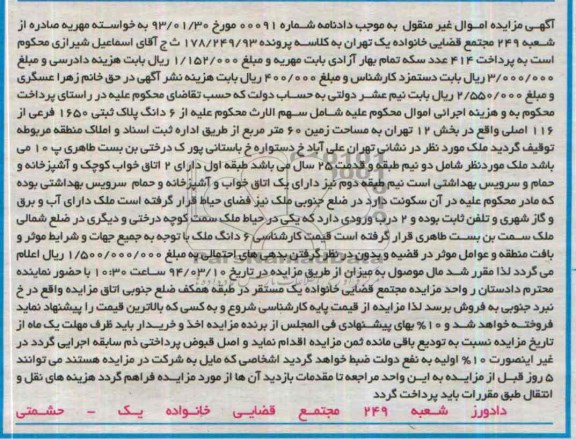 آگهـی مزایده امـوال غیر منقول به موجب دادنامه شماره ۰۰۰۹۱ مورخ ۹۳/۰۱/۳۰ به خواسته مهریه صادره از
شعبه ۲۴۹ مجتمع قضایی خانواده یک تهران به کلاسه پرونده ۱۷۸/۲۴۹/۹۳ ث ج آقای اسماعیل شیرازی محکوم
است به پرداخت ۴۱۴ عدد سکه تمام بهار آزادی بابت مهریه و مبلغ ۱/۱۵۲/۰۰۰ ریال بابت هزینه دادرسی و مبلغ
۳/۰۰۰/۰۰۰ ریال بابت دستمزد کارشناس و مبلغ ۴۰۰/۰۰۰ ریال بابت هزینه نشر آگهی در حق خانم زهرا عسگری
و مبلغ ۲/۵۵۰/۰۰۰ ریال بابت نیم عشر دولتی به حساب دولت که حسب تقاضای محکوم علیه در راستای پرداخت
محکوم به و هزینه اجرایی اموال محکوم علیه شامل سهم الارث محکوم علیه از ۶ دانگ پلاک ثبتی ۱۶۵۰ فرعی از
۱۱۶ اصلی واقع در بخش ۱۲ تهران به مساحت زمین ۶۰ متر مربع از طریق اداره ثبت اسناد و املاک منطقه مربوطه
توقیف گردید ملک مورد نظر در نشانی تهران علی آباد خ دستواره خ باستانی پور ک درختی بن بست طاهری پ ۱۰ می
باشد ملک موردنظر شامل دو نیم طبقه و قدمت ۲۵ سال می باشد طبقه اول دارای ۲ اتاق خواب کوچک و آشپزخانه و
حمام و سرویس بهداشتی است نیم طبقه دوم نیز دارای یک اتاق خواب و آشپزخانه و حمام سرویس بهداشتی بوده
که مادر محکوم علیه در آن سکونت دارد در ضلع جنوبی ملک نیز فضای حیاط قرار گرفته است ملک دارای آب و برق
و گاز شهری و تلفن ثابت بوده و ۲ درب ورودی دارد که یکی در حیاط ملک سمت کوچه درختی و دیگری در ضلع شمالی
ملک سمت بن بست طاهری قرار گرفته است قیمت کارشناسی ۶ دانگ ملک با توجه به جمیع جهات و شرایط موثر و
بافت منطقه و عوامل موثر در قضیه و بدون در نظر گرفتن بدهی های احتمالی به مبلغ ۱/۵۰۰/۰۰۰/۰۰۰ ریال اعلام
می گردد لذا مقرر شد مال موصول به میزان از طریق مزایده در تاریخ ۹۴/۰۳/۱۰ ساعت ۱۰:۳۰ با حضور نماینده
محترم دادستان ر واحد مزایده مجتمع قضایی خانواده یک مستقر در طبقه همکف ضلع جنوبی اتاق مزایده واقع در خ
نبرد جنوبی به فروش برسد لذا مزایده از قیمت پایه کارشناسی شروع و به کسی که بالاترین قیمت را پیشنهاد نماید
فروخته خواهد شد و ۱۰% بهای پیشنهادی فی المجلس از برنده مزایده اخذ و خریدار باید ظرف مهلت یک ماه از
تاریخ مزایده نسبت به تودیع باقی مانده ثمن مزایده اقدام نماید و اصل قبوض پرداختی ذم سابقه اجرایی گردد در
غیر اینصورت ۱۰% اولیه به نفع دولت ضبط خواهد گردید اشخاصی که مایل به شرکت در مزایده هستند می توانند
۵ روز قبل از مزایده به این واحد مراجعه تا مقدمات بازدید آن ها از مورد مزایده فراهم گردد هزینه های نقل و
انتقال طبق مقررات باید پرداخت گردد
دادورز شعبه ۲۴۹ مجتمع قضایی خانواده یک - حشمتی